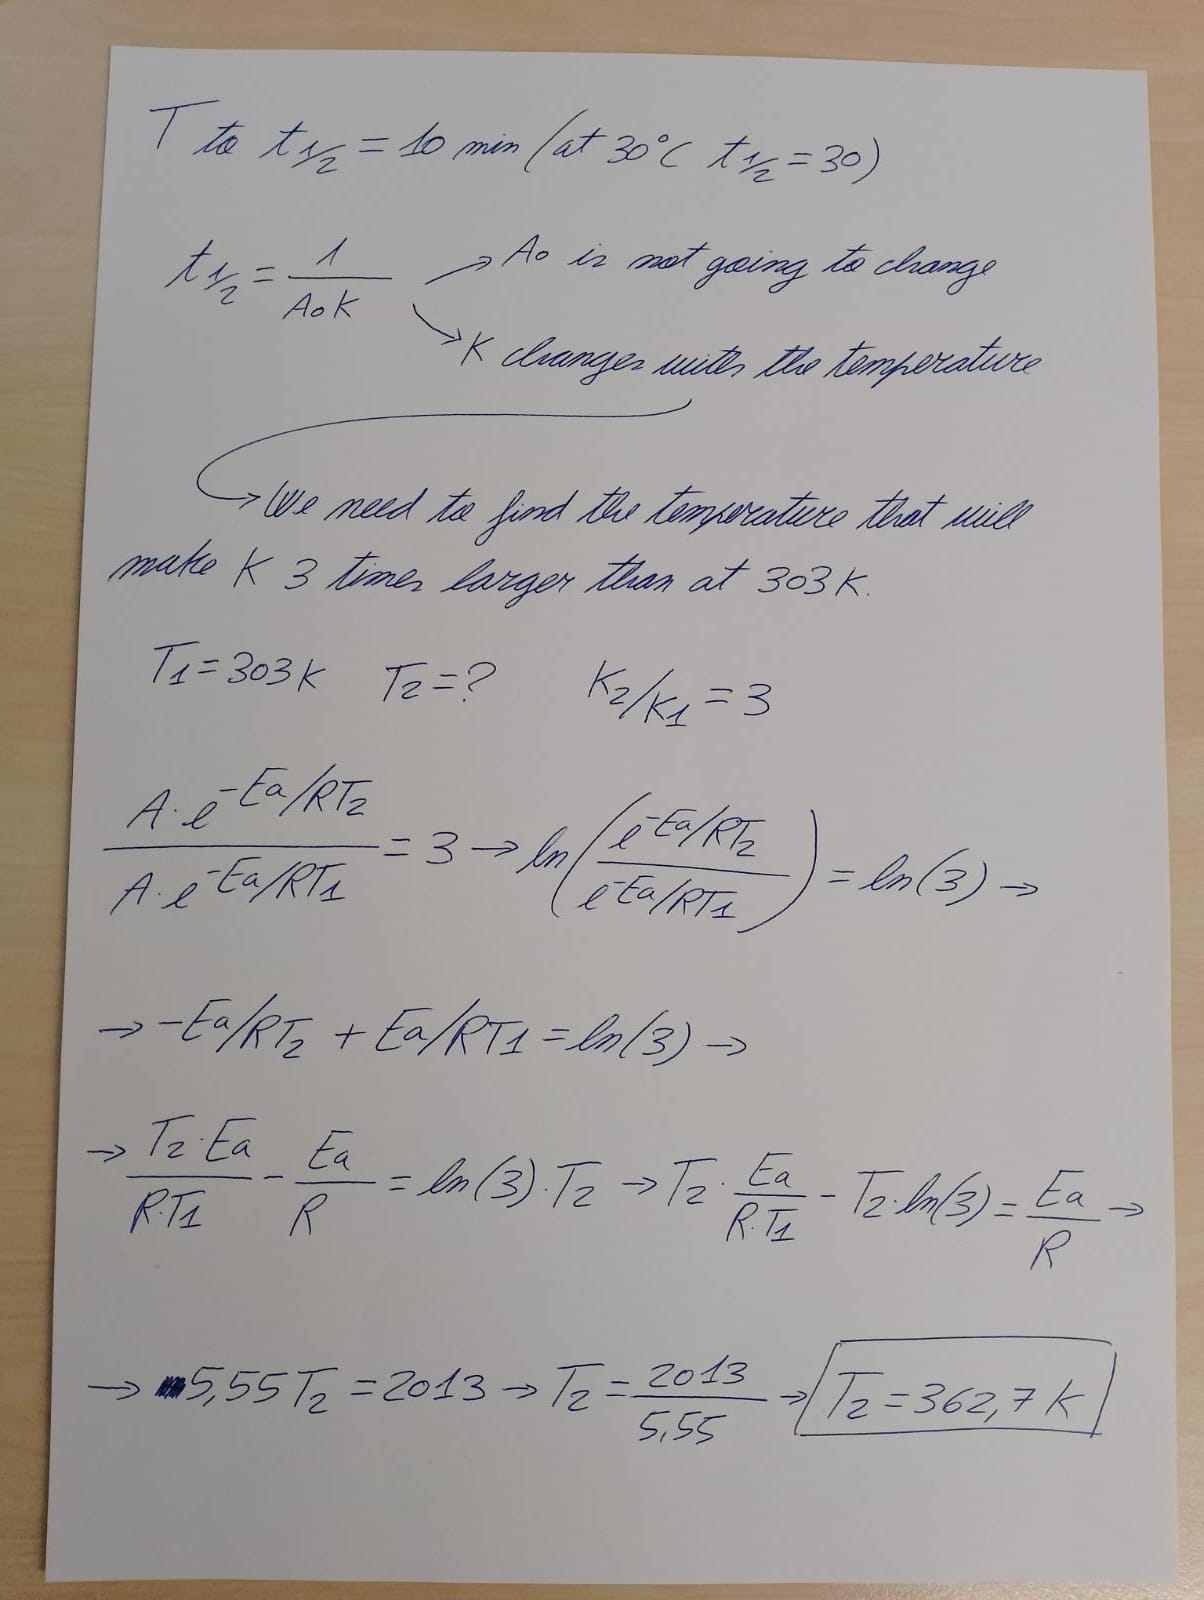 T to t1/2 = 10 min (at 30°C t1/2 = 30)
t1/2 = 1/(A0K) → A0 is not going to change
→ K changes with the temperature
→ We need to find the temperature that will
make K 3 times larger than at 303K.
T1 = 303K T2 = ? K2/K1 = 3
A·e^(-Ea/RT2) / A·e^(-Ea/RT1) = 3 → ln(e^(-Ea/RT2) / e^(-Ea/RT1)) = ln(3) →
→ -Ea/RT2 + Ea/RT1 = ln(3) →
→ T2·Ea/R·T1 - Ea/R = ln(3)·T2 → T2·Ea/R·T1 - T2·ln(3) = Ea/R →
→ 5,55T2 = 2013 → T2 = 2013/5,55 → T2 = 362,7 K